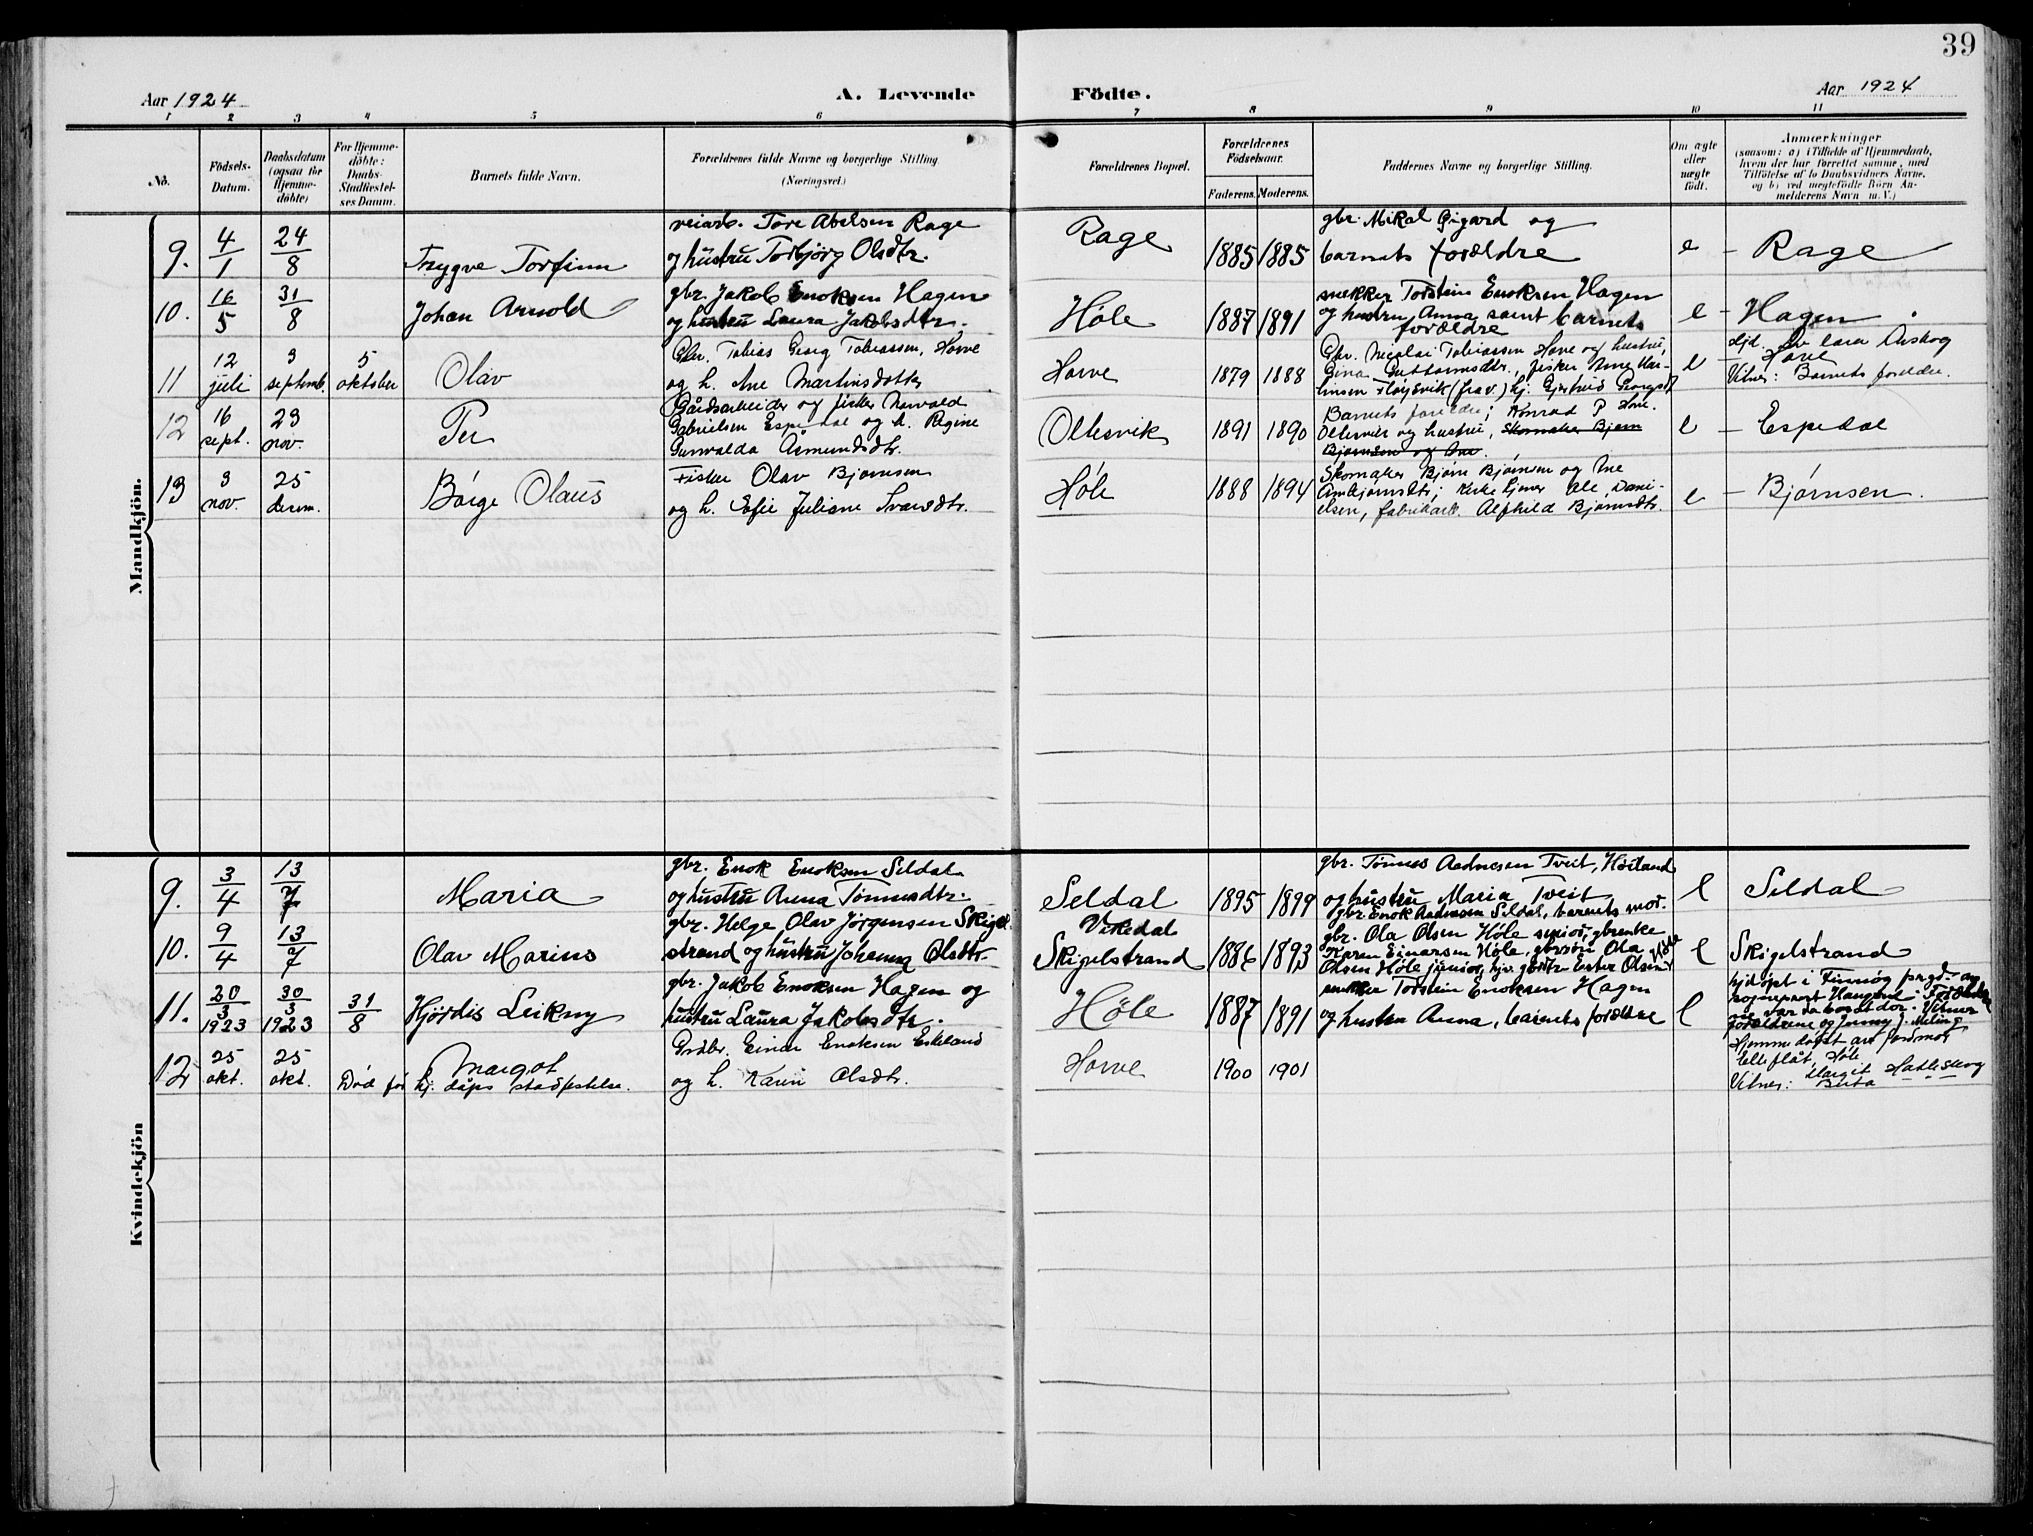 39
Aar 1924
A. Levende
Födte.
Aar 1924
1 2 3 4 5 6 7 8 9 10 11
No.
Födsels-
Datum.
Daabsdatum
(ogsaa for
Hjemme-
döbte)
For Hjemme-
döbte:
Daabs-
Stadfæstel-
ses Datum.
Barnets fulde Navn.
Forældrenes fulde Navne og borgerlige Stilling.
(Næringsvei.)
Forældrenes Bopæl.
Forældrenes
Födselsaar.
Faderens. Moderens.
Faddernes Navne og borgerlige Stilling.
Om ægte
eller
uægte
födt.
Anmærkninger
(saasom: a) i Tilfælde af Hjemmedaab,
hvem der har forrettet samme, med
Tilföielse af to Daabsvidners Navne,
og b) ved uegtefödte Börn An-
melderens Navn m. V.)
Mandkjön.
9. 4/1 24/8 Trygve Torfinn
veiarb. Tore Abelsen Rage
og hustru Torbjørg Olsdtr.
Rage 1885 1885
gbr. Mikal Øigard og
barnets forældre
e - Rage
10. 16/5 31/8 Johan Arnold
gbr. Jakob Enoksen Hagen
og hustru Laura Jakobsdtr.
Høle 1887 1891
snekker Torstein Enoksen Hagen
og hustru Anna samt barnets
forældre
e - Hagen
11 12 juli 9 septemb. 5 oktober Olav
Gbr. Tobias Georg Tobiassen, Horve
og h. Ane Martinsdotter
Horve 1879 1888
Gbr. Nicolai Tobiassen Hove og hustru,
Gina Guttormsdtr., fisker Arne Mar-
tinsen Fløysvik (frav.) hj. Gjertrud
e - Horve
Hjd. av lærer Auskog
Vitner: Barnets foreldre.
12 16 sept. 23 nov. Per
Gårdsarbeider og fisker Norvald
Gabrielsen Espedal og h. Regine
Gunvalda Asmundsdtr.
Oltesvik 1891 1890
Barnets foreldre; Konrad P
Oltesvik og hustru, Skomaker Bjørn
Bjørnsen og Ane.
e - Espedal
13 9 nov. 25 desem. Børge Olaus
Fisker Olav Bjørnsen
og h. Efie Juliane Svarsdtr.
Høle 1888 1894
Skomaker Bjørn Bjørnsen og Ane
Ambjørnsdtr; kirketjener Ole Dani-
elsen, fabrikarb. Alfhild Bjørnsdtr.
e - Bjørnsen.
Kvindekjön
9. 3/4 13/7 Maria
gbr. Enok Enoksen Seldal
og hustru Anna Tønnesdtr.
Seldal 1895 1899
gbr. Tønnes Aadnesen Tveit, Høiland
og hustru Maria Tveit
gbr. Enok Aadnesen Seldal, barnets mor.
e Seldal
10. 9/4 13/7 Olav Marius
gbr. Helge Olav Jørgensen Skigel-
strand og hustru Johanna Olsdtr.
Vikedal
Skigelstrand 1886 1893
gbr. Ola Olsen Høle senior, gbrenke
Karen Einarsen Høle, gbrsøn Ola
Olsen Høle junior, hjv. gbrdtr. Ester Olsen Høle
e Skigelstrand
11. 20/3 1923 30/3 1923 31/8 Hjørdis Leikny
gbr. Jakob Enoksen Hagen og
hustru Laura Jakobsdtr.
Høle 1887 1891
snekker Torstein Enoksen Hagen
og hustru Anna, barnets forældre
e
hjdøpt i Finnøy prgd. av
sogneprest Haugene. Forældre-
ne var da bosat der. Vitner
forældrene og Jenny J. Meling
12 25 okt. 25 okt. Margot
Død før hj. dåps stadfestelse.
Grdbr. Einar Enoksen Eskeland
og h. Karen Olsdtr.
Horve 1900 1901
Hjemmedøpt av jordmor
Elle flåt, Høle
Vitner: Margit Hatleskog
Berta